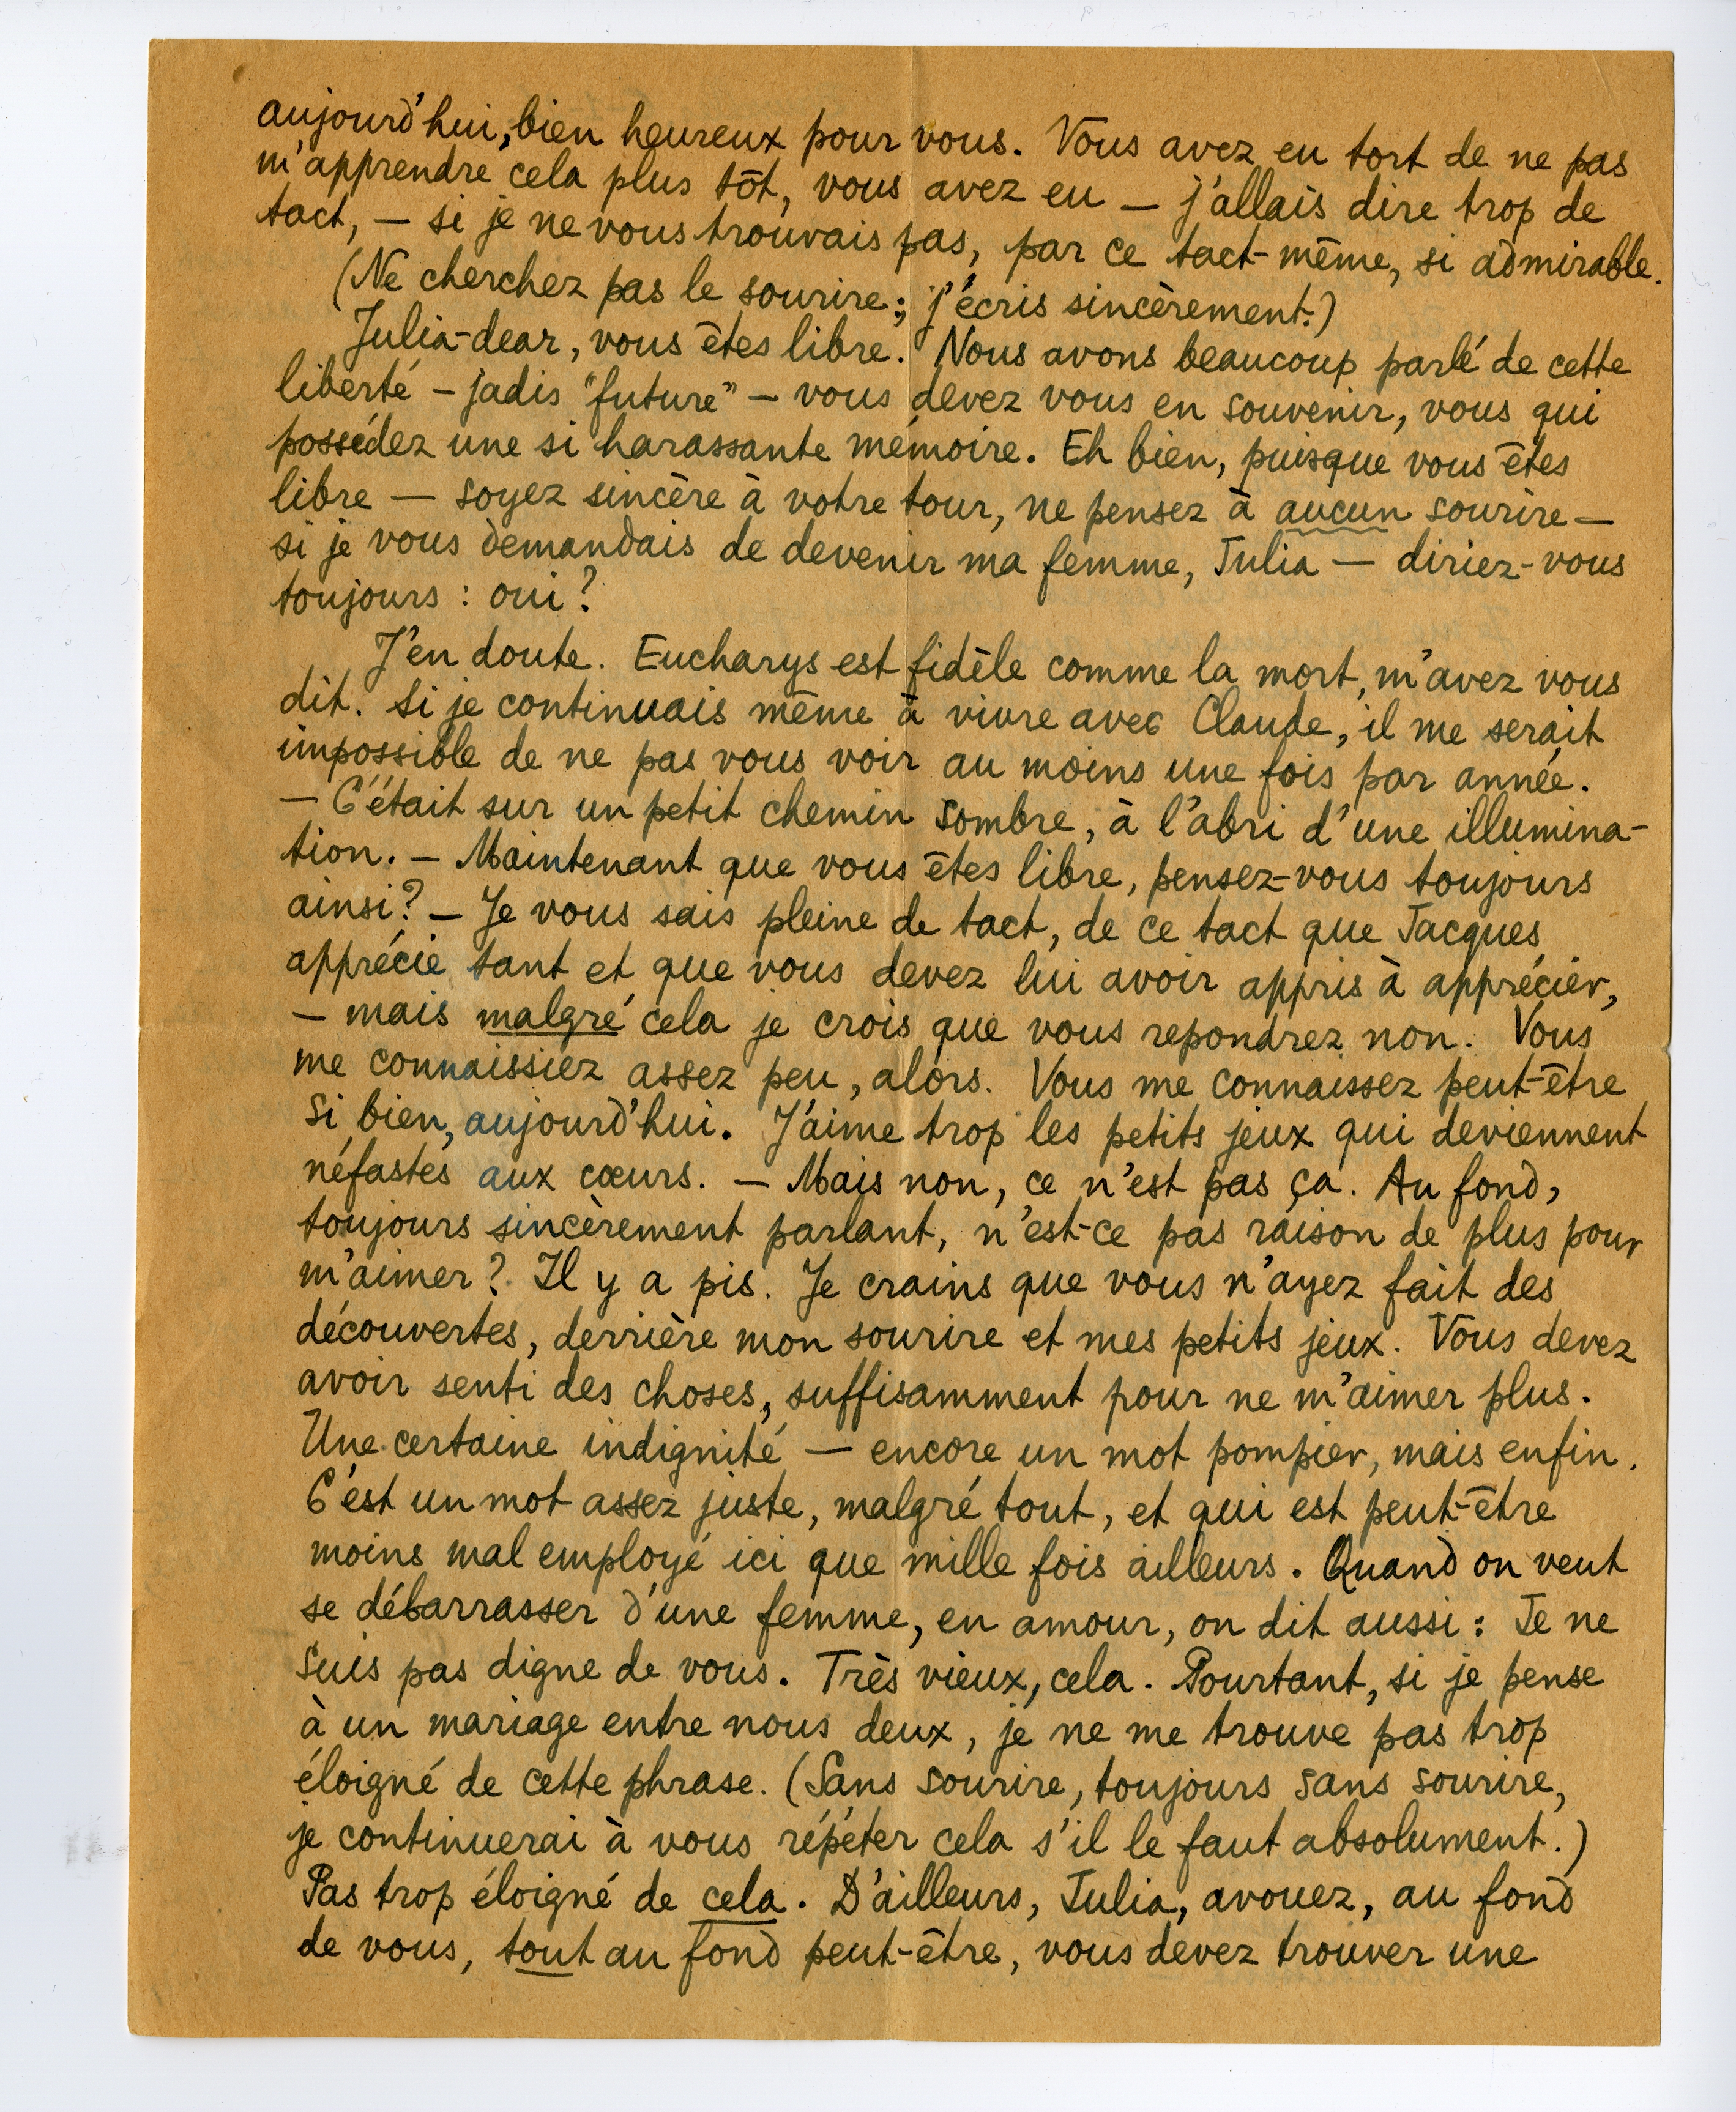 aujourd'hui, bien heureux pour vous. Vous avez eu tort de ne pas
m'apprendre cela plus tôt, vous avez eu — j'allais dire trop de
tact, — si je ne vous trouvais pas, par ce tact-même, si admirable.
(Ne cherchez pas le sourire; j'écris sincèrement.)
Julia-dear, vous êtes libre. Nous avons beaucoup parlé de cette
liberté — jadis "future" — vous devez vous en souvenir, vous qui
possédez une si harassante mémoire. Eh bien, puisque vous êtes
libre — soyez sincère à votre tour, ne pensez à aucun sourire —
si je vous demandais de devenir ma femme, Julia — diriez-vous
toujours : oui?
J'en doute. Eucharys est fidèle comme la mort, m'avez vous
dit. Si je continuais même à vivre avec Claude, il me serait
impossible de ne pas vous voir au moins une fois par année.
— C'était sur un petit chemin sombre, à l'abri d'une illumina-
tion. — Maintenant que vous êtes libre, pensez-vous toujours
ainsi? — Je vous sais pleine de tact, de ce tact que Jacques
apprécie tant et que vous devez lui avoir appris à apprécier,
— mais malgré cela je crois que vous repondrez non. Vous
me connaissiez assez peu, alors. Vous me connaissez peut-être
si bien, aujourd'hui. J'aime trop les petits jeux qui deviennent
néfastes aux cœurs. — Mais non, ce n'est pas ça. Au fond,
toujours sincèrement parlant, n'est-ce pas raison de plus pour
m'aimer? Il y a pis. Je crains que vous n'ayez fait des
découvertes, derrière mon sourire et mes petits jeux. Vous devez
avoir senti des choses, suffisamment pour ne m'aimer plus.
Une certaine indignité — encore un mot pompier, mais enfin.
C'est un mot assez juste, malgré tout, et qui est peut-être
moins mal employé ici que mille fois ailleurs. Quand on veut
se débarrasser d'une femme, en amour, on dit aussi : Je ne
suis pas digne de vous. Très vieux, cela. Pourtant, si je pense
à un mariage entre nous deux, je ne me trouve pas trop
éloigné de cette phrase. (Sans sourire, toujours sans sourire,
je continuerai à vous répéter cela s'il le faut absolument.)
Pas trop éloigné de cela. D'ailleurs, Julia, avouez, au fond
de vous, tout au fond peut-être, vous devez trouver une